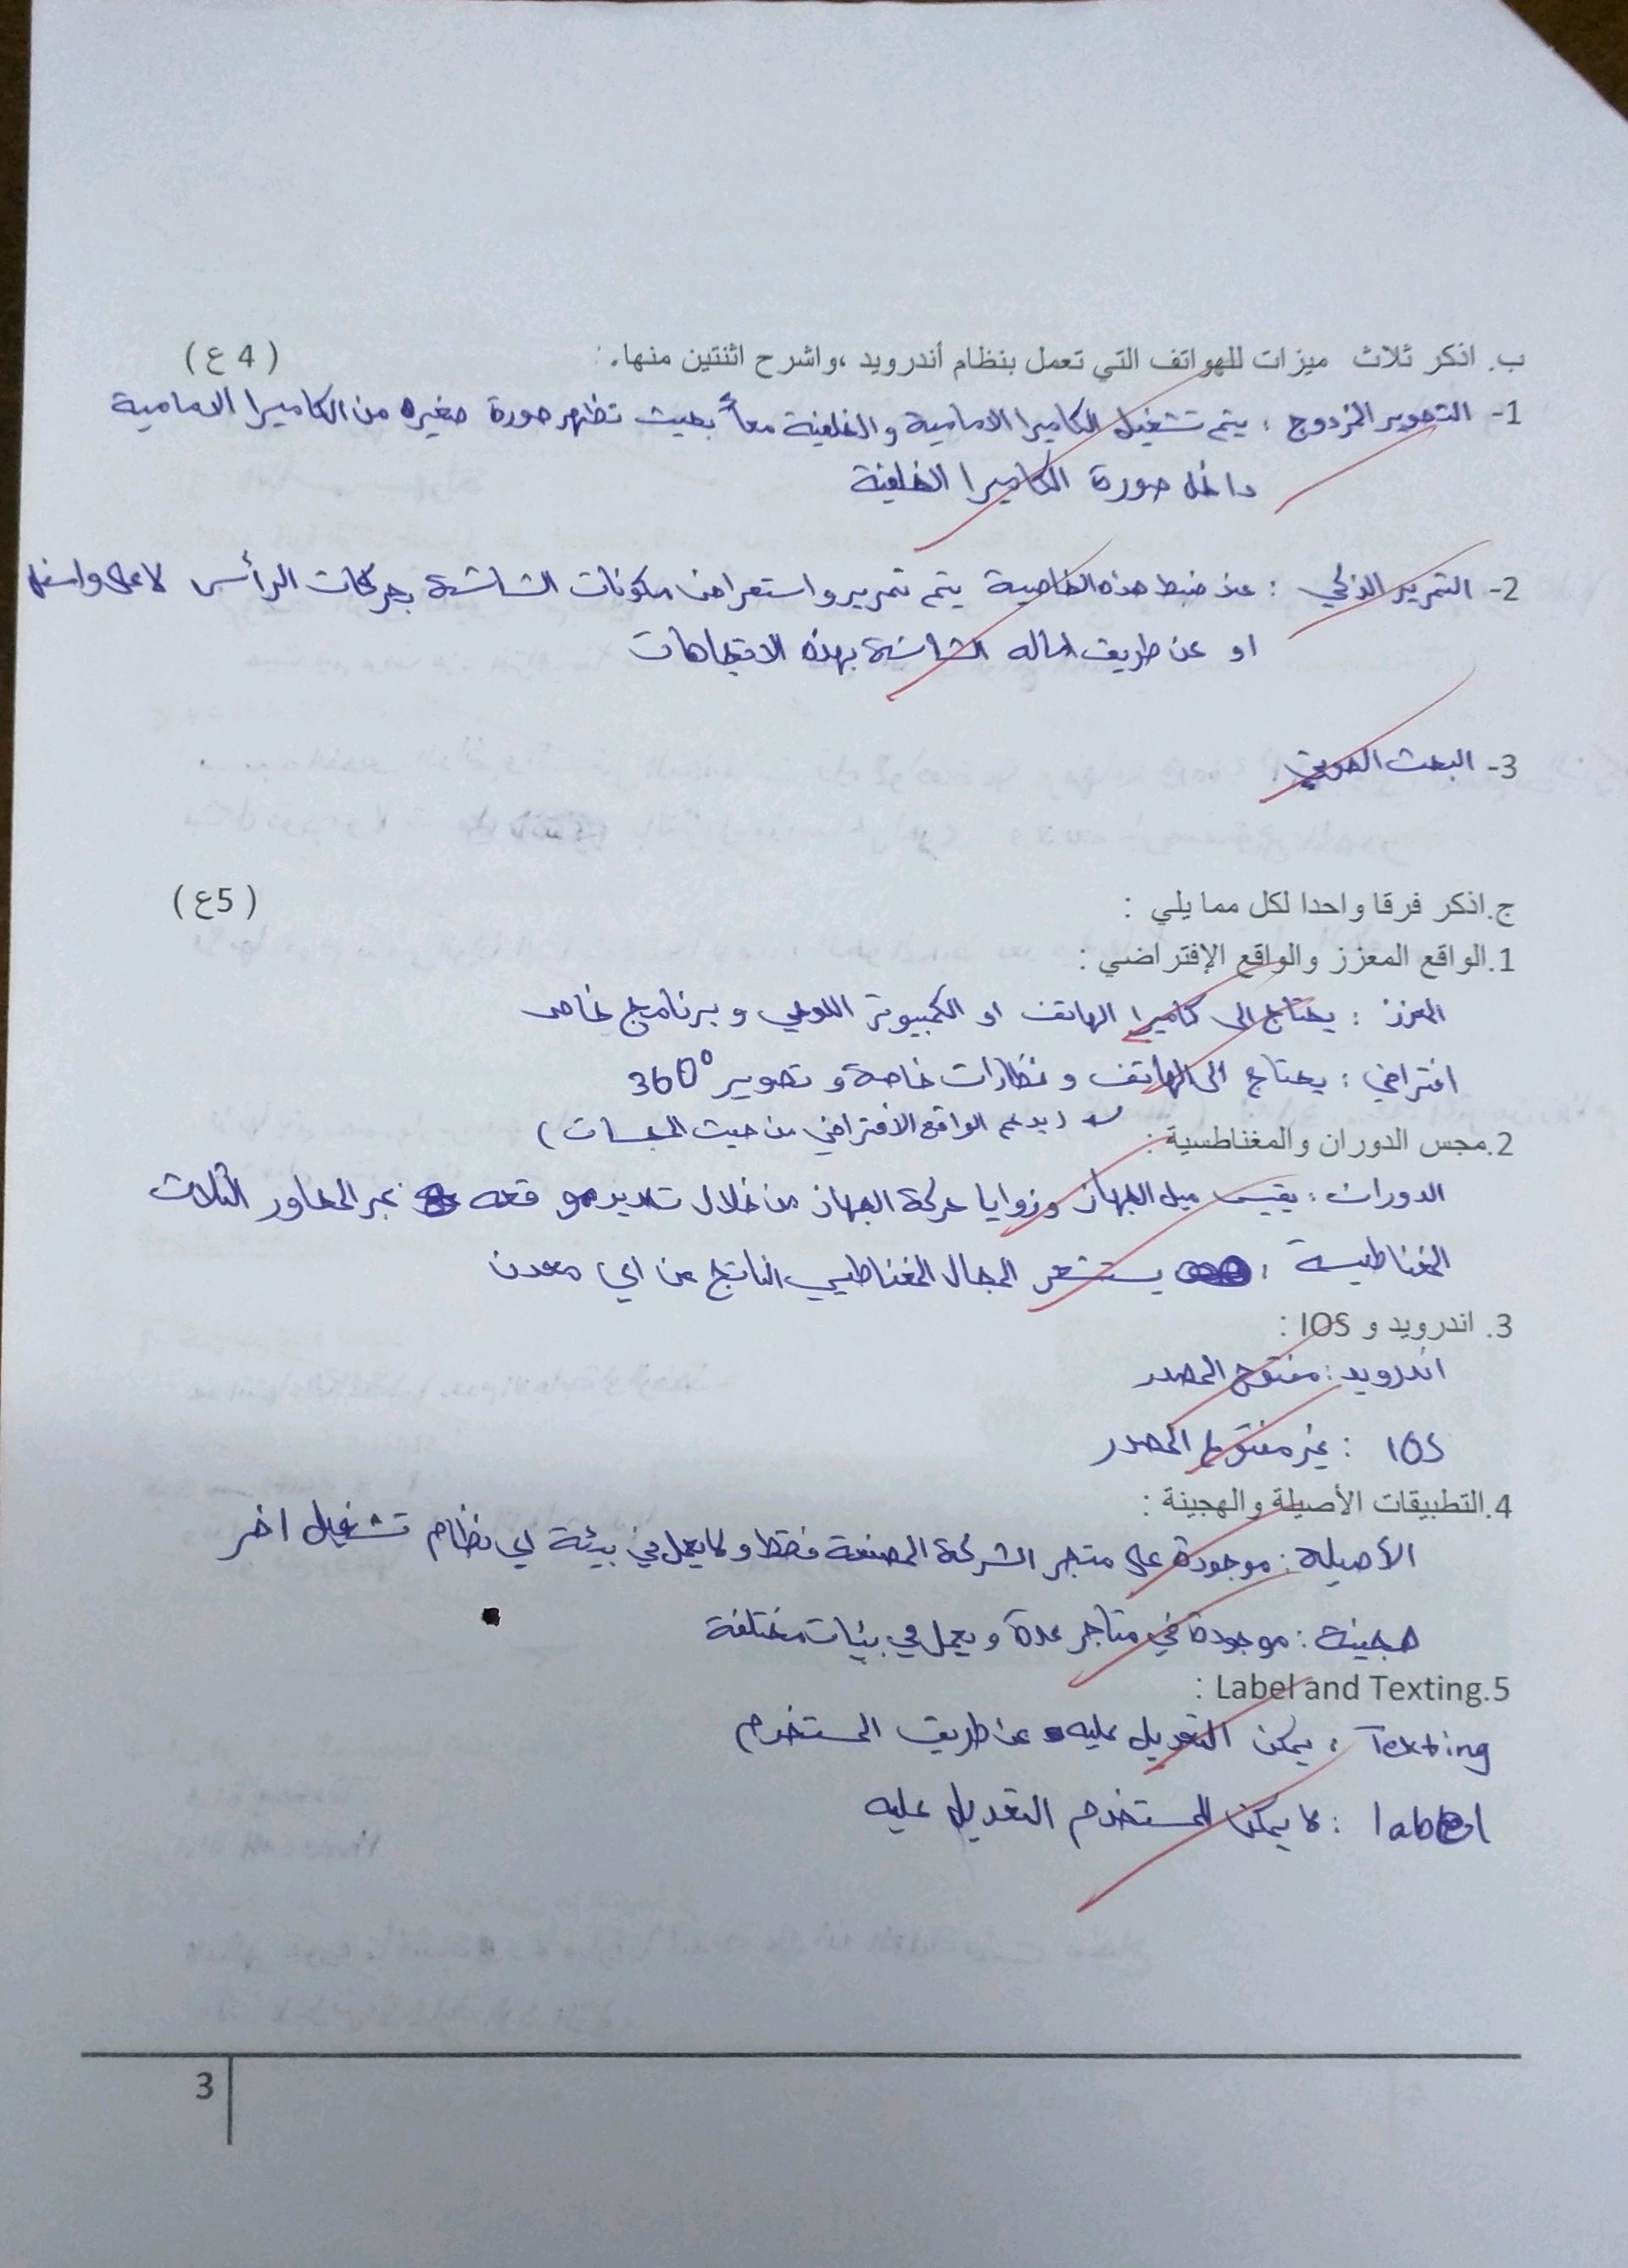 ب. اذكر ثلاث ميزات للهواتف التي تعمل بنظام أندرويد ،واشرح اثنتين منها. : ( 4 ع )
1- التصوير المزدوج : يتم تشغيل الكاميرا الامامية والخلفية معاً بحيث تظهر صورة صغيره من الكاميرا الامامية
داخل صورة الكاميرا الخلفية
2- التمرير الذكي : عند ضبط هذه الخاصية يتم تمرير واستعراض مكونات الشاشة بحركات الرأس لاعلى واسفل
او عن طريق اماله الشاشة بهذه الاتجاهات
3- البحث الصوتي
ج.اذكر فرقا واحدا لكل مما يلي : ( 5ع )
1.الواقع المعزز والواقع الإفتراضي :
المعزز : يحتاج الى كاميرا الهاتف او الكمبيوتر اللوحي وبرنامج خاص
افتراضي : يحتاج الى الهاتف ونظارات خاصة وتصوير 360°
(يدعم الواقع الافتراضي من حيث المجسات)
2.مجس الدوران والمغناطسية :
الدوران : يقيس ميل الجهاز وزوايا حركة الجهاز من خلال تحديد موقعه عبر المحاور الثلاث
المغناطيسية : يستشعر المجال المغناطيسي الناتج عن اي معدن
3. اندرويد و IOS :
اندرويد : مفتوح المصدر
IOS : غير مفتوح المصدر
4.التطبيقات الأصيلة والهجينة :
الأصيلة : موجودة على متجر الشركة المصنعة فقط ولا يعمل في بيئة اي نظام تشغيل اخر
هجينة : موجودة في متاجر عدة ويعمل في بيئات مختلفة
5.Label and Texting :
Texting : يمكن التعديل عليه عن طريق المستخدم
label : لا يمكن للمستخدم التعديل عليه
3